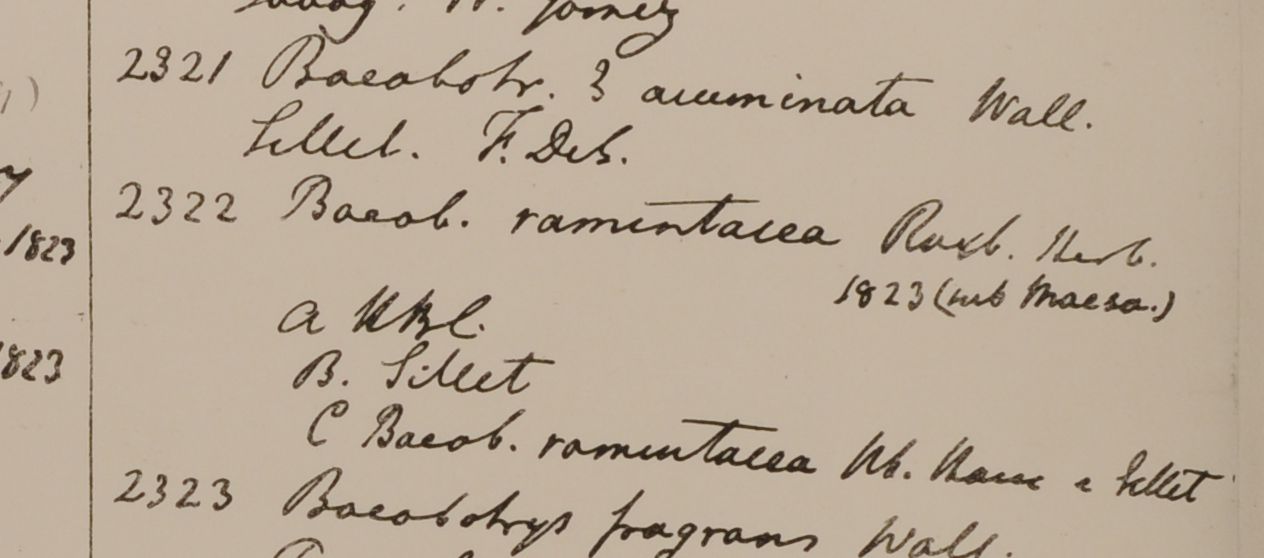 W. Gomez
2321 Baeobotr. ? acuminata Wall.
Sillet. F. DeS.
2322 Baeob. ramentacea Roxb. Herb.
1823
1823 (sub Maesa.)
a HBC.
B. Sillet
1823
C Baeob. ramentacea Hb. Ham e Sillet
2323 Baeobotrys fragrans Wall.